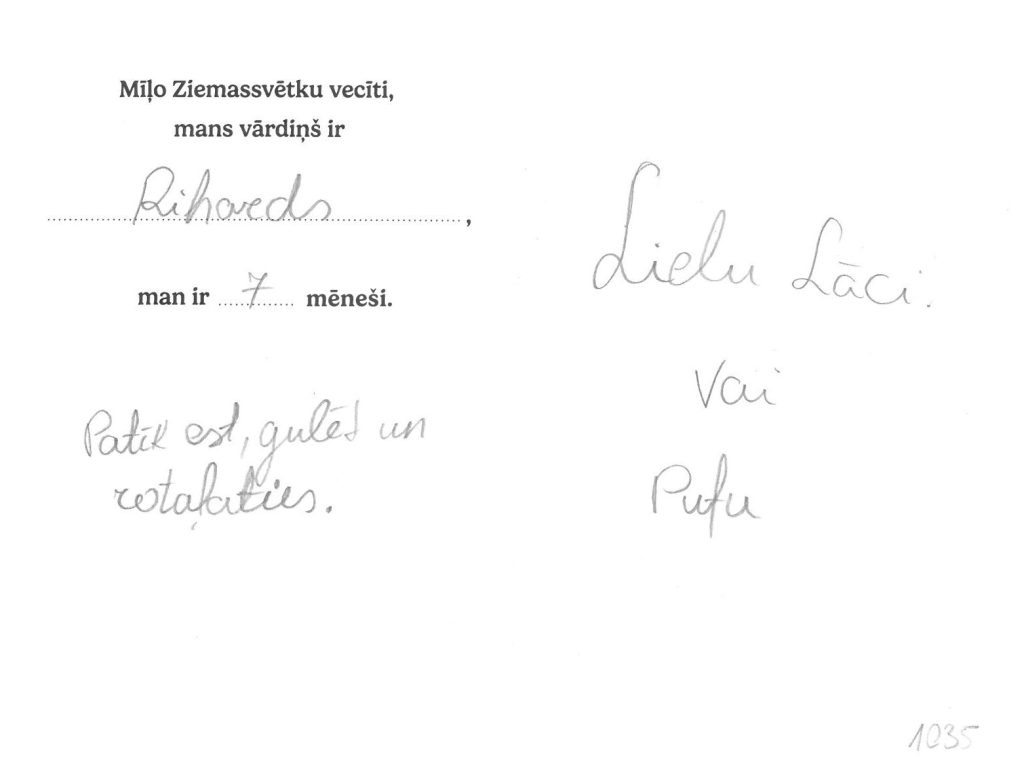 Mīļo Ziemassvētku vecīti,
mans vārdiņš ir
Rihards,
man ir 7 mēneši.
Patīk est, gulēt un
rotaļaties.
Lielu Lāci.
Vai
Pufu
1035